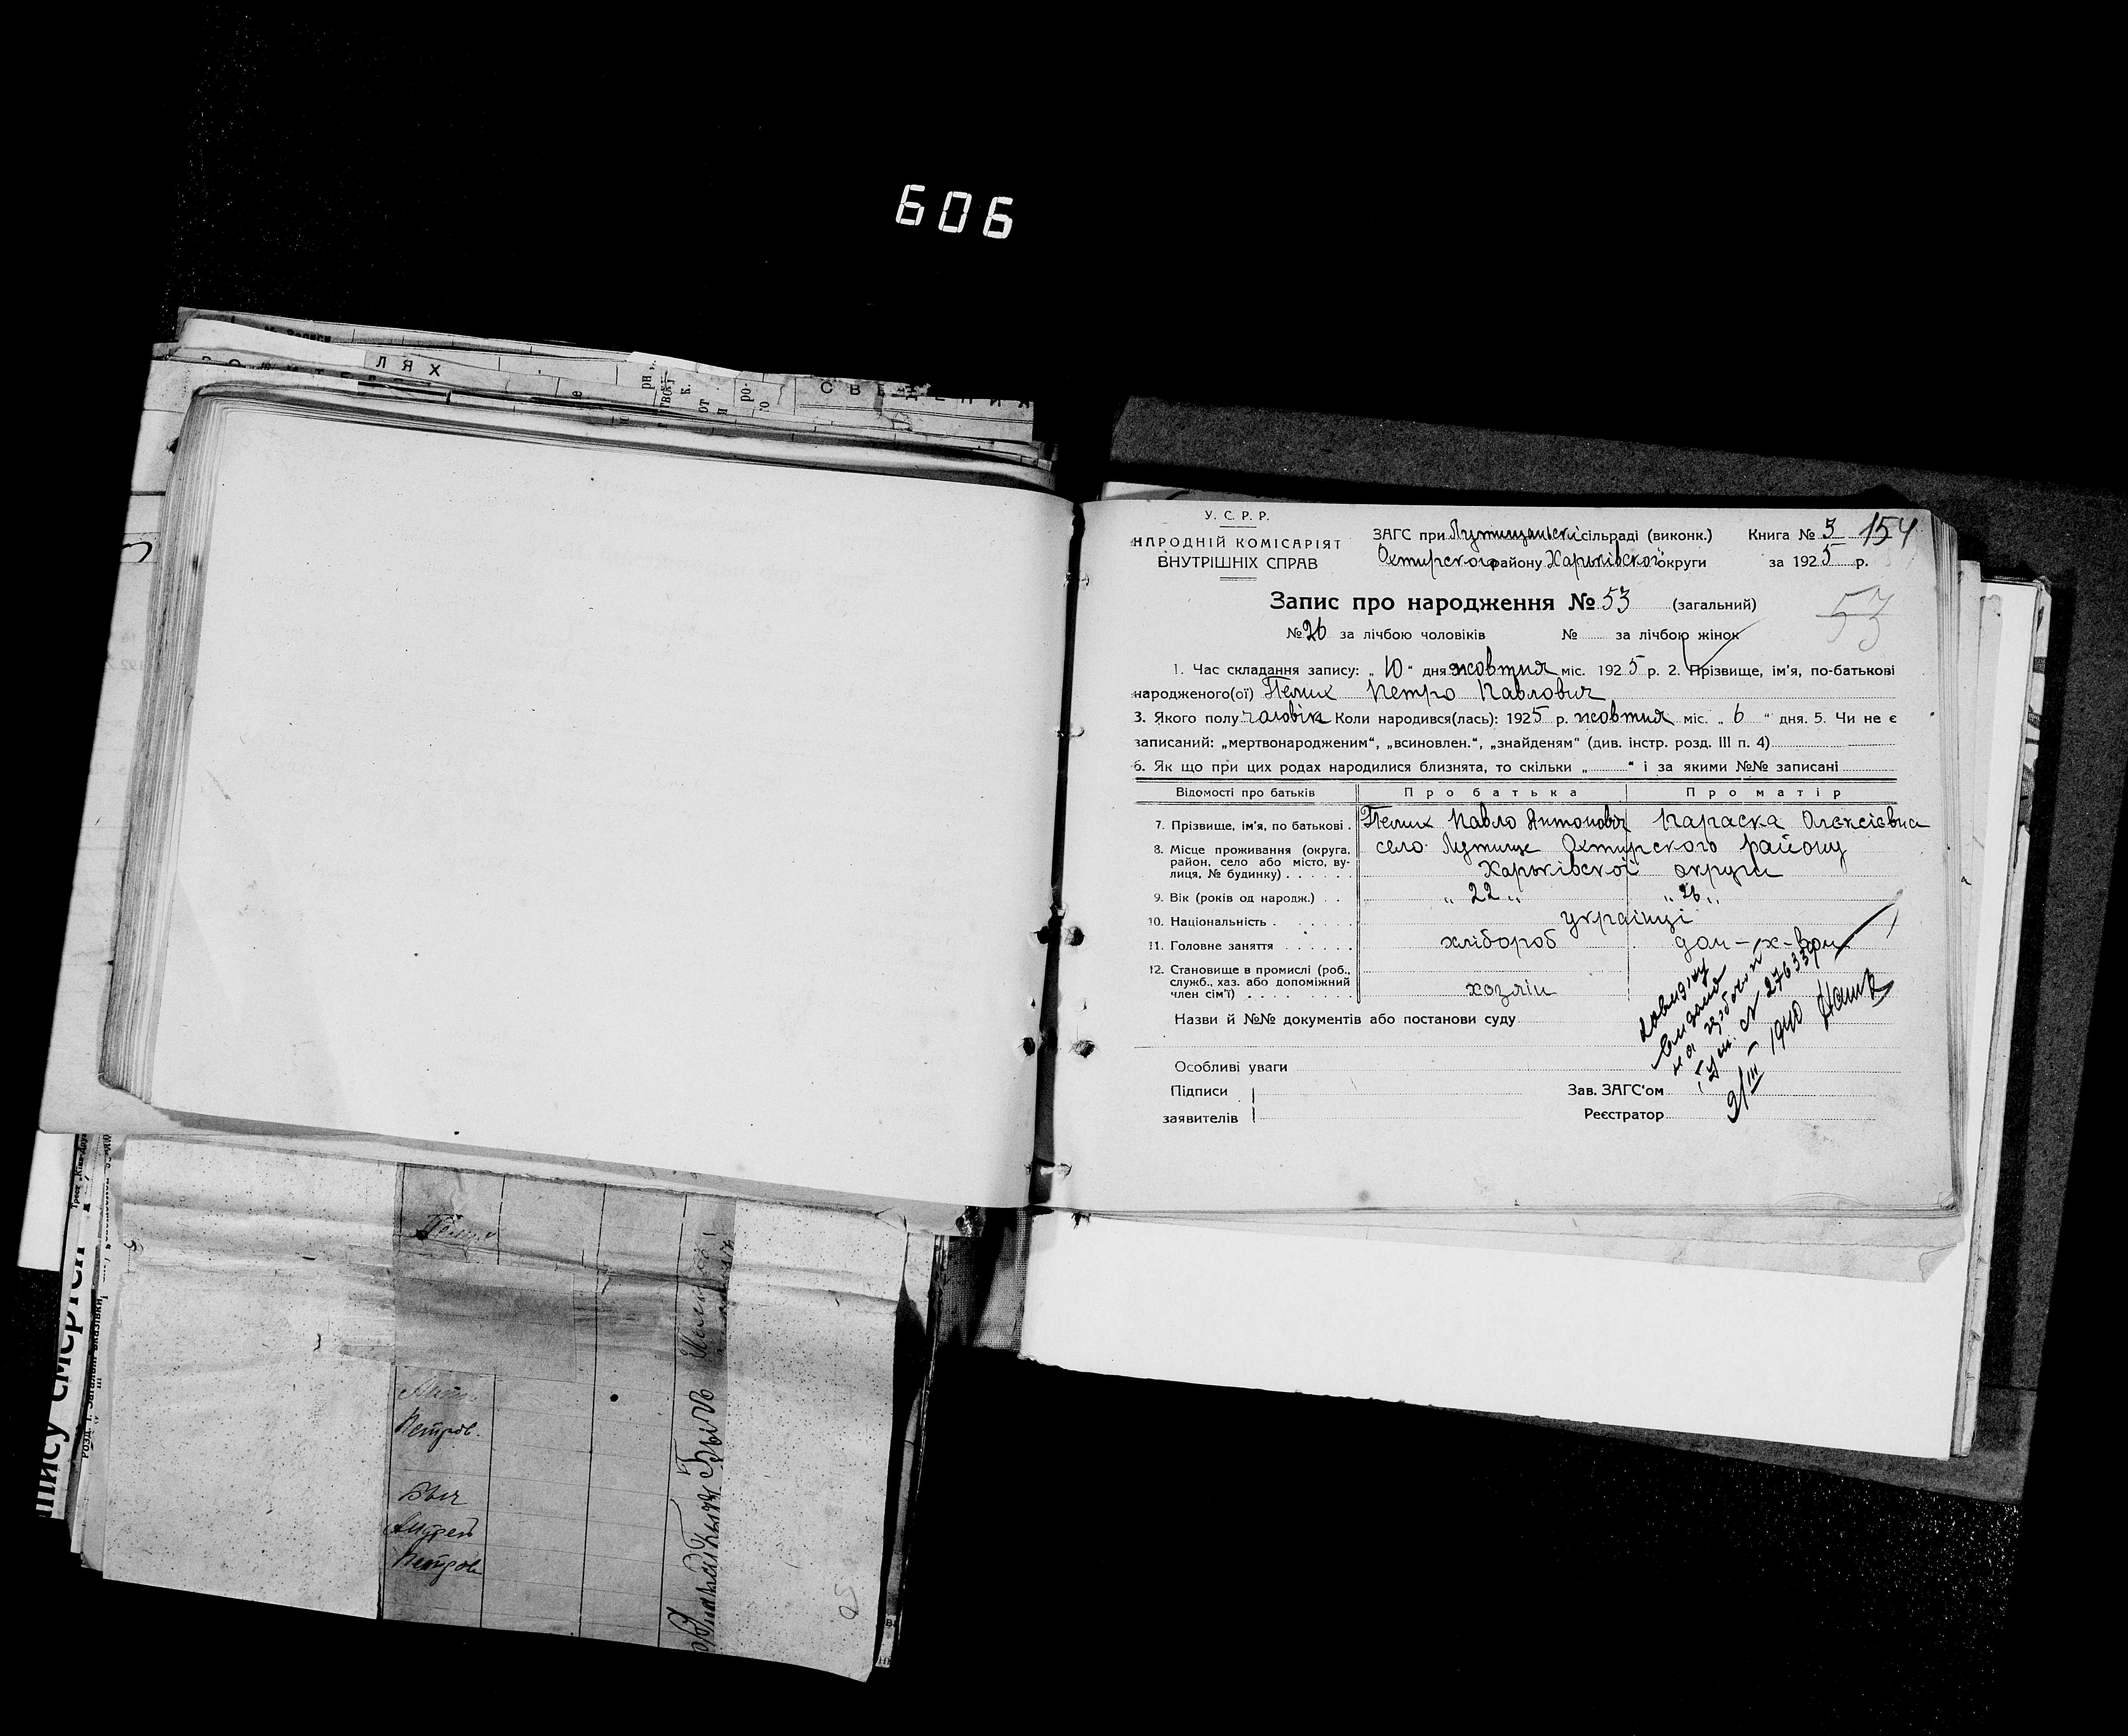 606
ЛЯХ
У. С. Р. Р.
НАРОДНІЙ КОМІСАРІЯТ
ВНУТРІШНІХ СПРАВ
ЗАГС при Лутищанскі сільраді (виконк.)
Охтирского району Харьківскої округи
Книга № 3 154
за 1925 р.
Запис про народження № 53 (загальний)
53
№ 26 за лічбою чоловіків № за лічбою жінок
1. Час складання запису: „ 10 “ дня жовтня міс. 1925 р. 2. Прізвище, ім'я, по-батькові
народженого(ої) Пелих Петро Павлович
3. Якого полу чаловік Коли народився(лась): 1925 р. жовтня міс. „ 6 “ дня. 5. Чи не є
записаний: „мертвонародженим“, „всиновлен.“, „знайденям“ (див. інстр. розд. III п. 4)
6. Як що при цих родах народилися близнята, то скільки „ “ і за якими №№ записані
Відомості про батьків Про батька Про матір
7. Прізвище, ім'я, по батькові . Пелих Павло Антонович Параска Олексієвна
8. Місце проживання (округа, район, село або місто, ву-
лиця, № будинку) . . . . . . село Лутище Охтирского району
Харьківскої округи
9. Вік (років од народж.) . . „ 22 „ „ 26 „
10. Національність . . . . . . українці
11. Головне заняття . . . . . . хлібороб дом-х-вом
12. Становище в промислі (роб.,
служб., хаз. або допоміжний
член сім'ї) . . . . . . . . хозяїн
Назви й №№ документів або постанови суду
Особливі уваги
Підписи
заявителів
Зав. ЗАГС'ом
Реєстратор
довидку
видано
1940
Петров.
Андрей
Петров